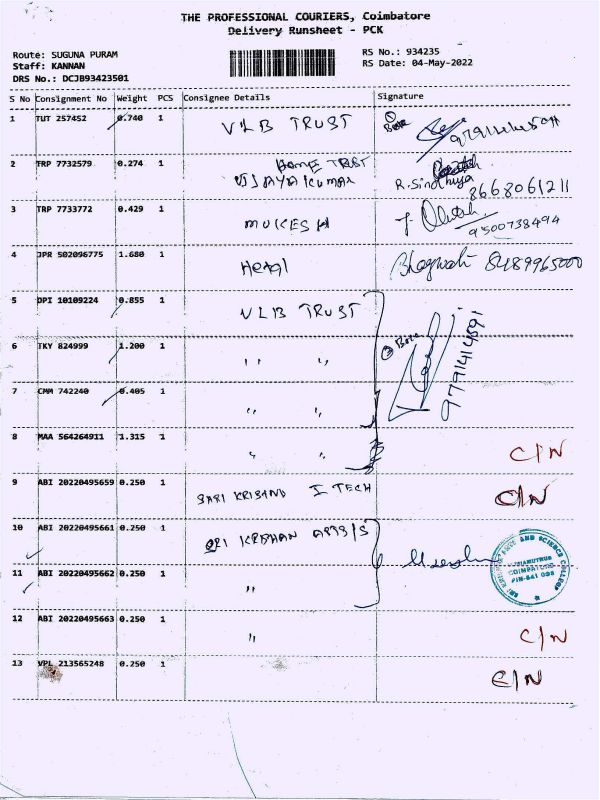 THE PROFESSIONAL COURIERS, Coimbatore
Delivery Runsheet - PCK
Route: SUGUNA PURAM
Staff: KANNAN
DRS No.: DCJB93423501
RS No.: 934235
RS Date: 04-May-2022
S No Consignment No Weight PCS Consignee Details Signature
1 TUT 257452 0.740 1 VLB TRUST
2 TRP 7732579 0.274 1 VIJAYA KUMAR R. Sindhuya 8668061211
3 TRP 7733772 0.429 1 MUKESH 9500738494
4 JPR 502096775 1.680 1 Bhagwati 8489965000
5 DPI 10109224 0.855 1 VLB TRUST
6 TKY 824999 1.200 1 " "
7 CMM 742240 0.405 1 " " 9791414591
8 MAA 564264911 1.315 1 " " C/N
9 ABI 20220495659 0.250 1 I TECH C/N
10 ABI 20220495661 0.250 1
11 ABI 20220495662 0.250 1 "
12 ABI 20220495663 0.250 1 " C/N
13 VPL 213565248 0.250 1 C/N
AND SCIENCE COLLEGE
COIMBATORE
PIN-641 008